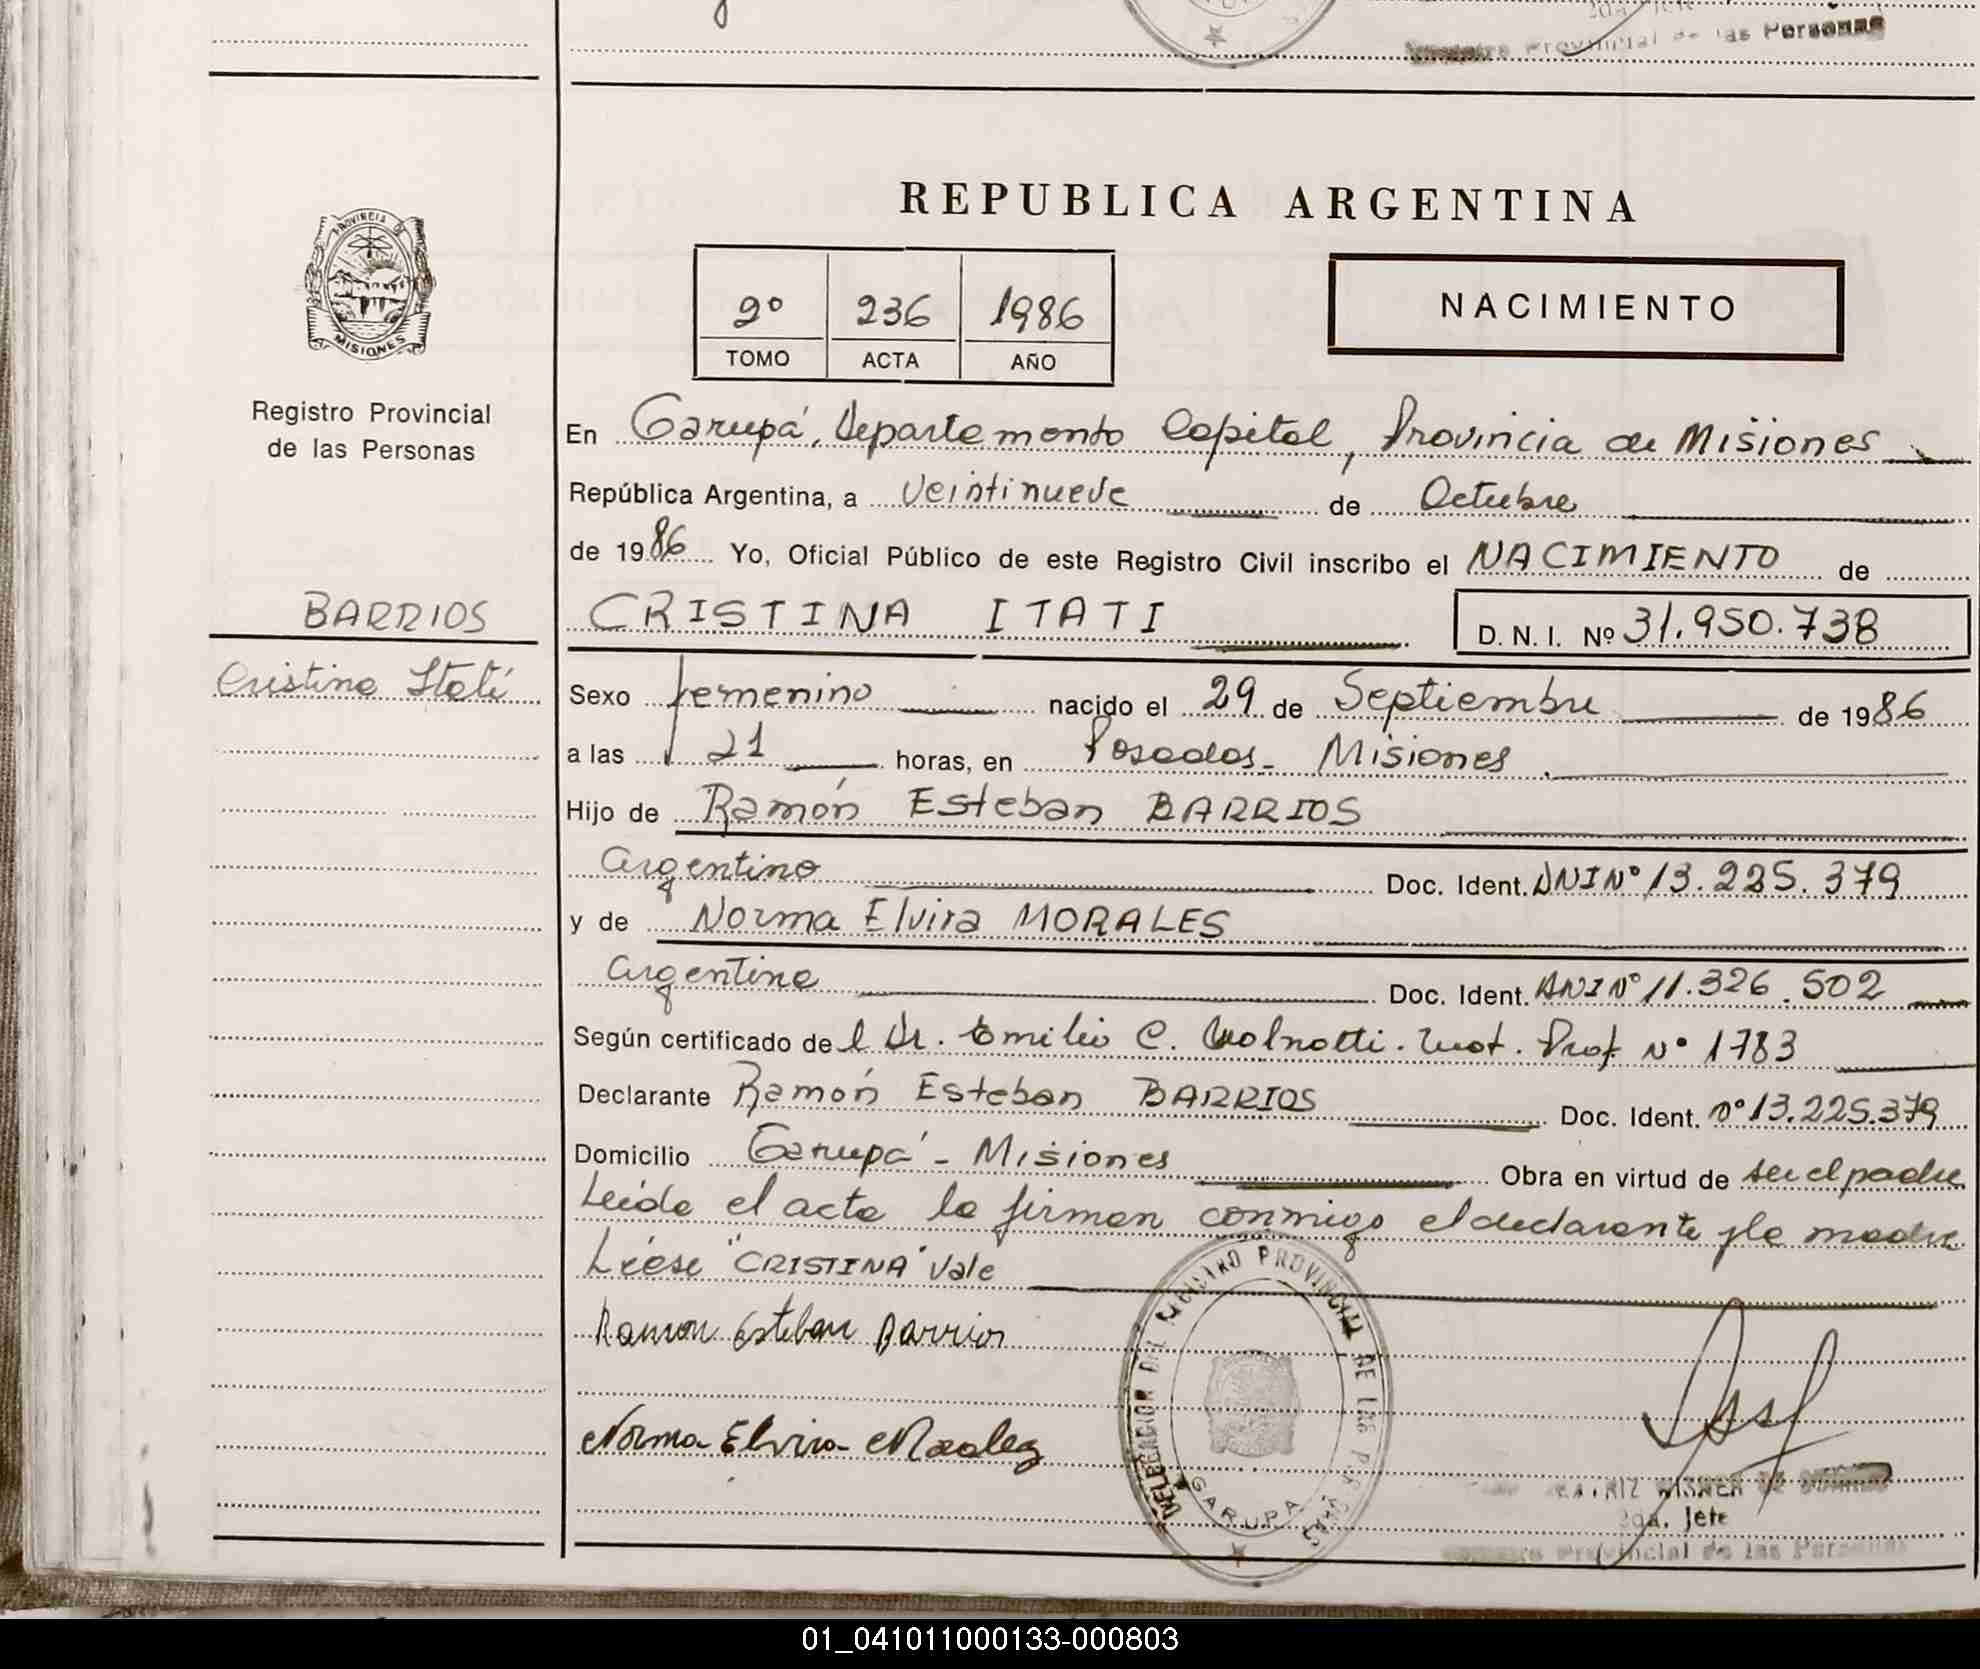 Provincial de las Personas
REPUBLICA ARGENTINA
PROVINCIA DE
MISIONES
Registro Provincial
de las Personas
2º 236 1986
TOMO ACTA AÑO
NACIMIENTO
En Garupá, Departamento Capital, Provincia de Misiones
República Argentina, a veintinueve de Octubre
de 1986 Yo, Oficial Público de este Registro Civil inscribo el NACIMIENTO de
BARRIOS
CRISTINA ITATI D. N. I. Nº 31.950.738
Cristina Itatí
Sexo femenino nacido el 29 de Septiembre de 1986
a las 21 horas, en Posadas - Misiones
Hijo de Ramón Esteban BARRIOS
argentino Doc. Ident. DNI Nº 13.225.379
y de Norma Elvira MORALES
argentina Doc. Ident. DNI Nº 11.326.502
Según certificado del Dr. Emilio C. Prof Nº 1783
Declarante Ramón Esteban BARRIOS Doc. Ident. Nº 13.225.379
Domicilio Garupá - Misiones Obra en virtud de ser el padre
Leída el acta la firman conmigo el declarante y la madre
Léese "CRISTINA" Vale
Ramon Esteban Barrios
Norma Elvira Morales
DELEGACION DEL REGISTRO PROVINCIAL DE LAS PERSONAS
GARUPA
2da. Jefe
Provincial de las Personas
01_041011000133-000803